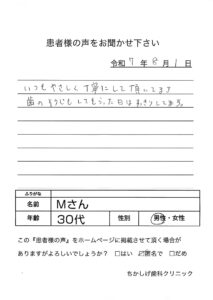 患者様の声をお聞かせ下さい
令和 7 年 8 月 1 日
いつもやさしく丁寧にして頂いてます
歯のそうじもしてもらった日はすっきりしてます。
ふりがな
名前 Mさん
年齢 30代 性別 男性・女性
この『患者様の声』をホームページに掲載させて頂く場合が
ありますがよろしいでしょうか? □はい ☑匿名で □だめ
ちかしげ歯科クリニック